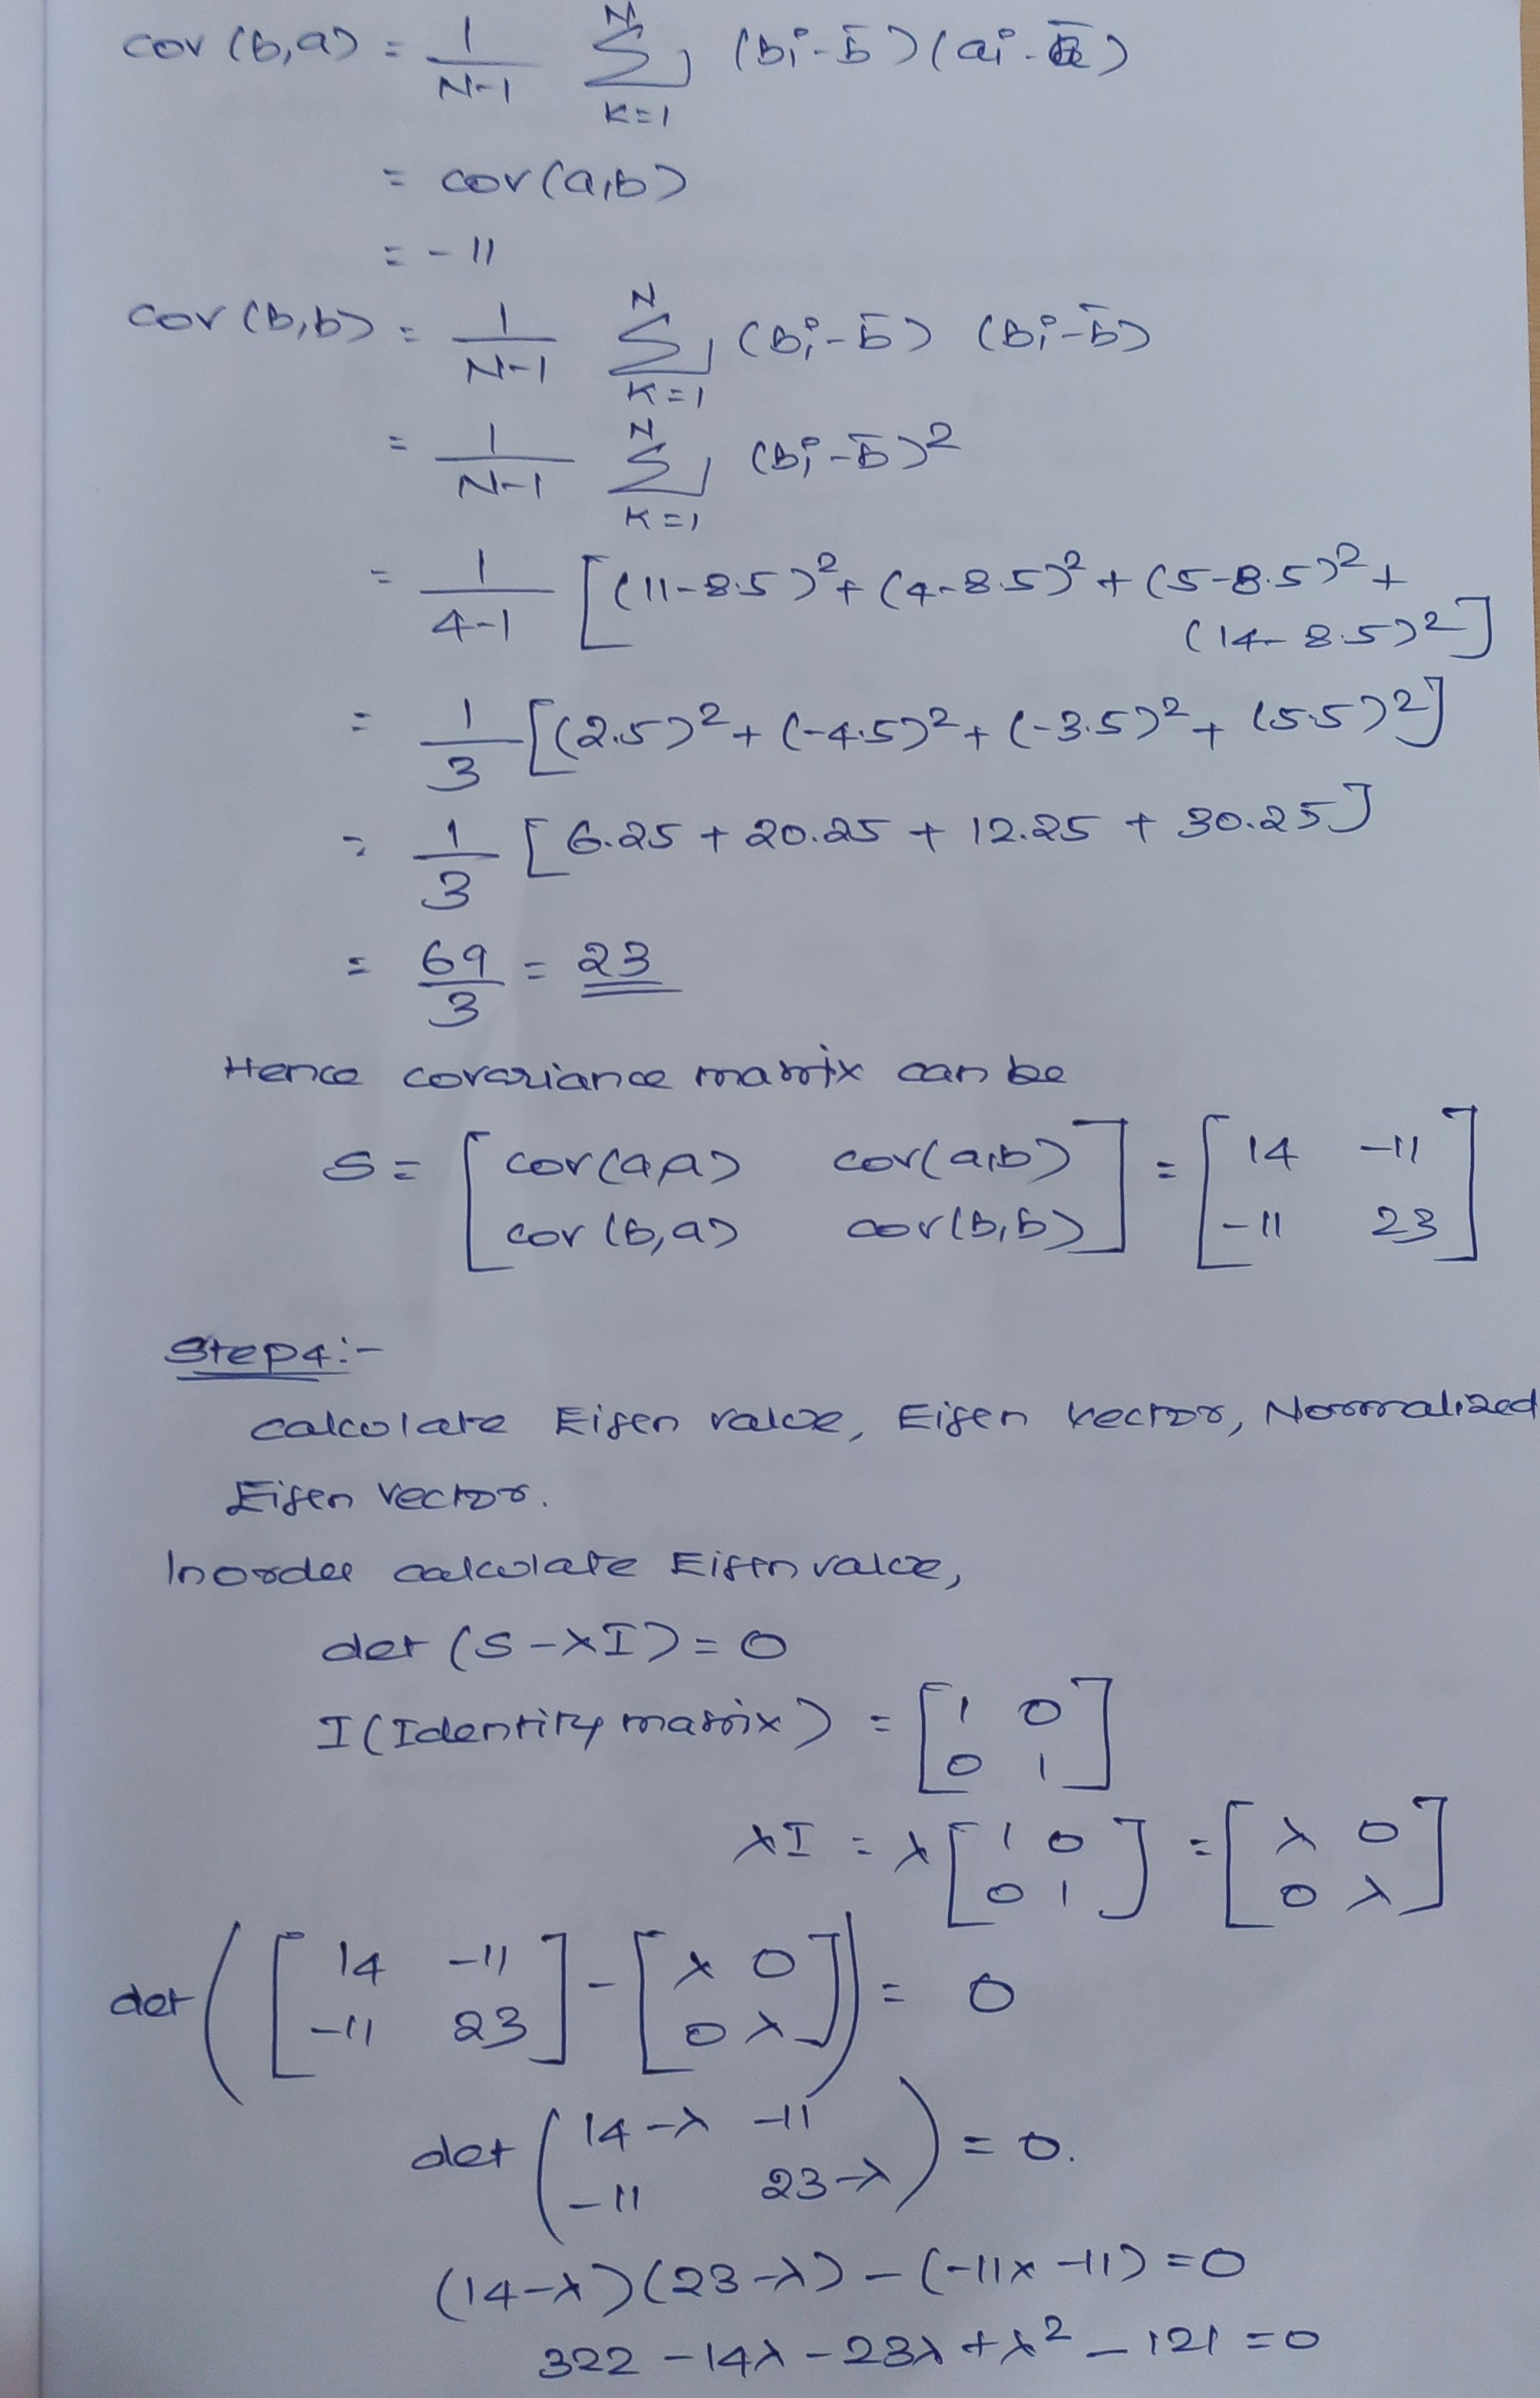 cov (b,a) = 1/(N-1) N Σ K=1 (bi - b̄) (ai - ā)
= cov (a,b)
= -11
cov (b,b) = 1/(N-1) N Σ K=1 (bi - b̄) (bi - b̄)
= 1/(N-1) N Σ K=1 (bi - b̄)²
= 1/(4-1) [(11-8.5)² + (4-8.5)² + (5-8.5)² +
(14-8.5)²]
= 1/3 [(2.5)² + (-4.5)² + (-3.5)² + (5.5)²]
= 1/3 [6.25 + 20.25 + 12.25 + 30.25]
= 69/3 = 23
Hence covariance matrix can be
S = [ cov(a,a) cov(a,b) ] = [ 14 -11 ]
[ cov (b,a) cov(b,b) ] [ -11 23 ]
Step 4:-
calculate Eigen value, Eigen vector, Normalized
Eigen vector.
In order calculate Eigen value,
det (S - λI) = 0
I (Identity matrix) = [ 1 0 ]
[ 0 1 ]
λI = λ [ 1 0 ] = [ λ 0 ]
[ 0 1 ] [ 0 λ ]
det ( [ 14 -11 ] - [ λ 0 ] ) = 0
[ -11 23 ] [ 0 λ ]
det ( 14-λ -11 ) = 0.
( -11 23-λ )
(14-λ) (23-λ) - (-11x -11) = 0
322 - 14λ - 23λ + λ² - 121 = 0